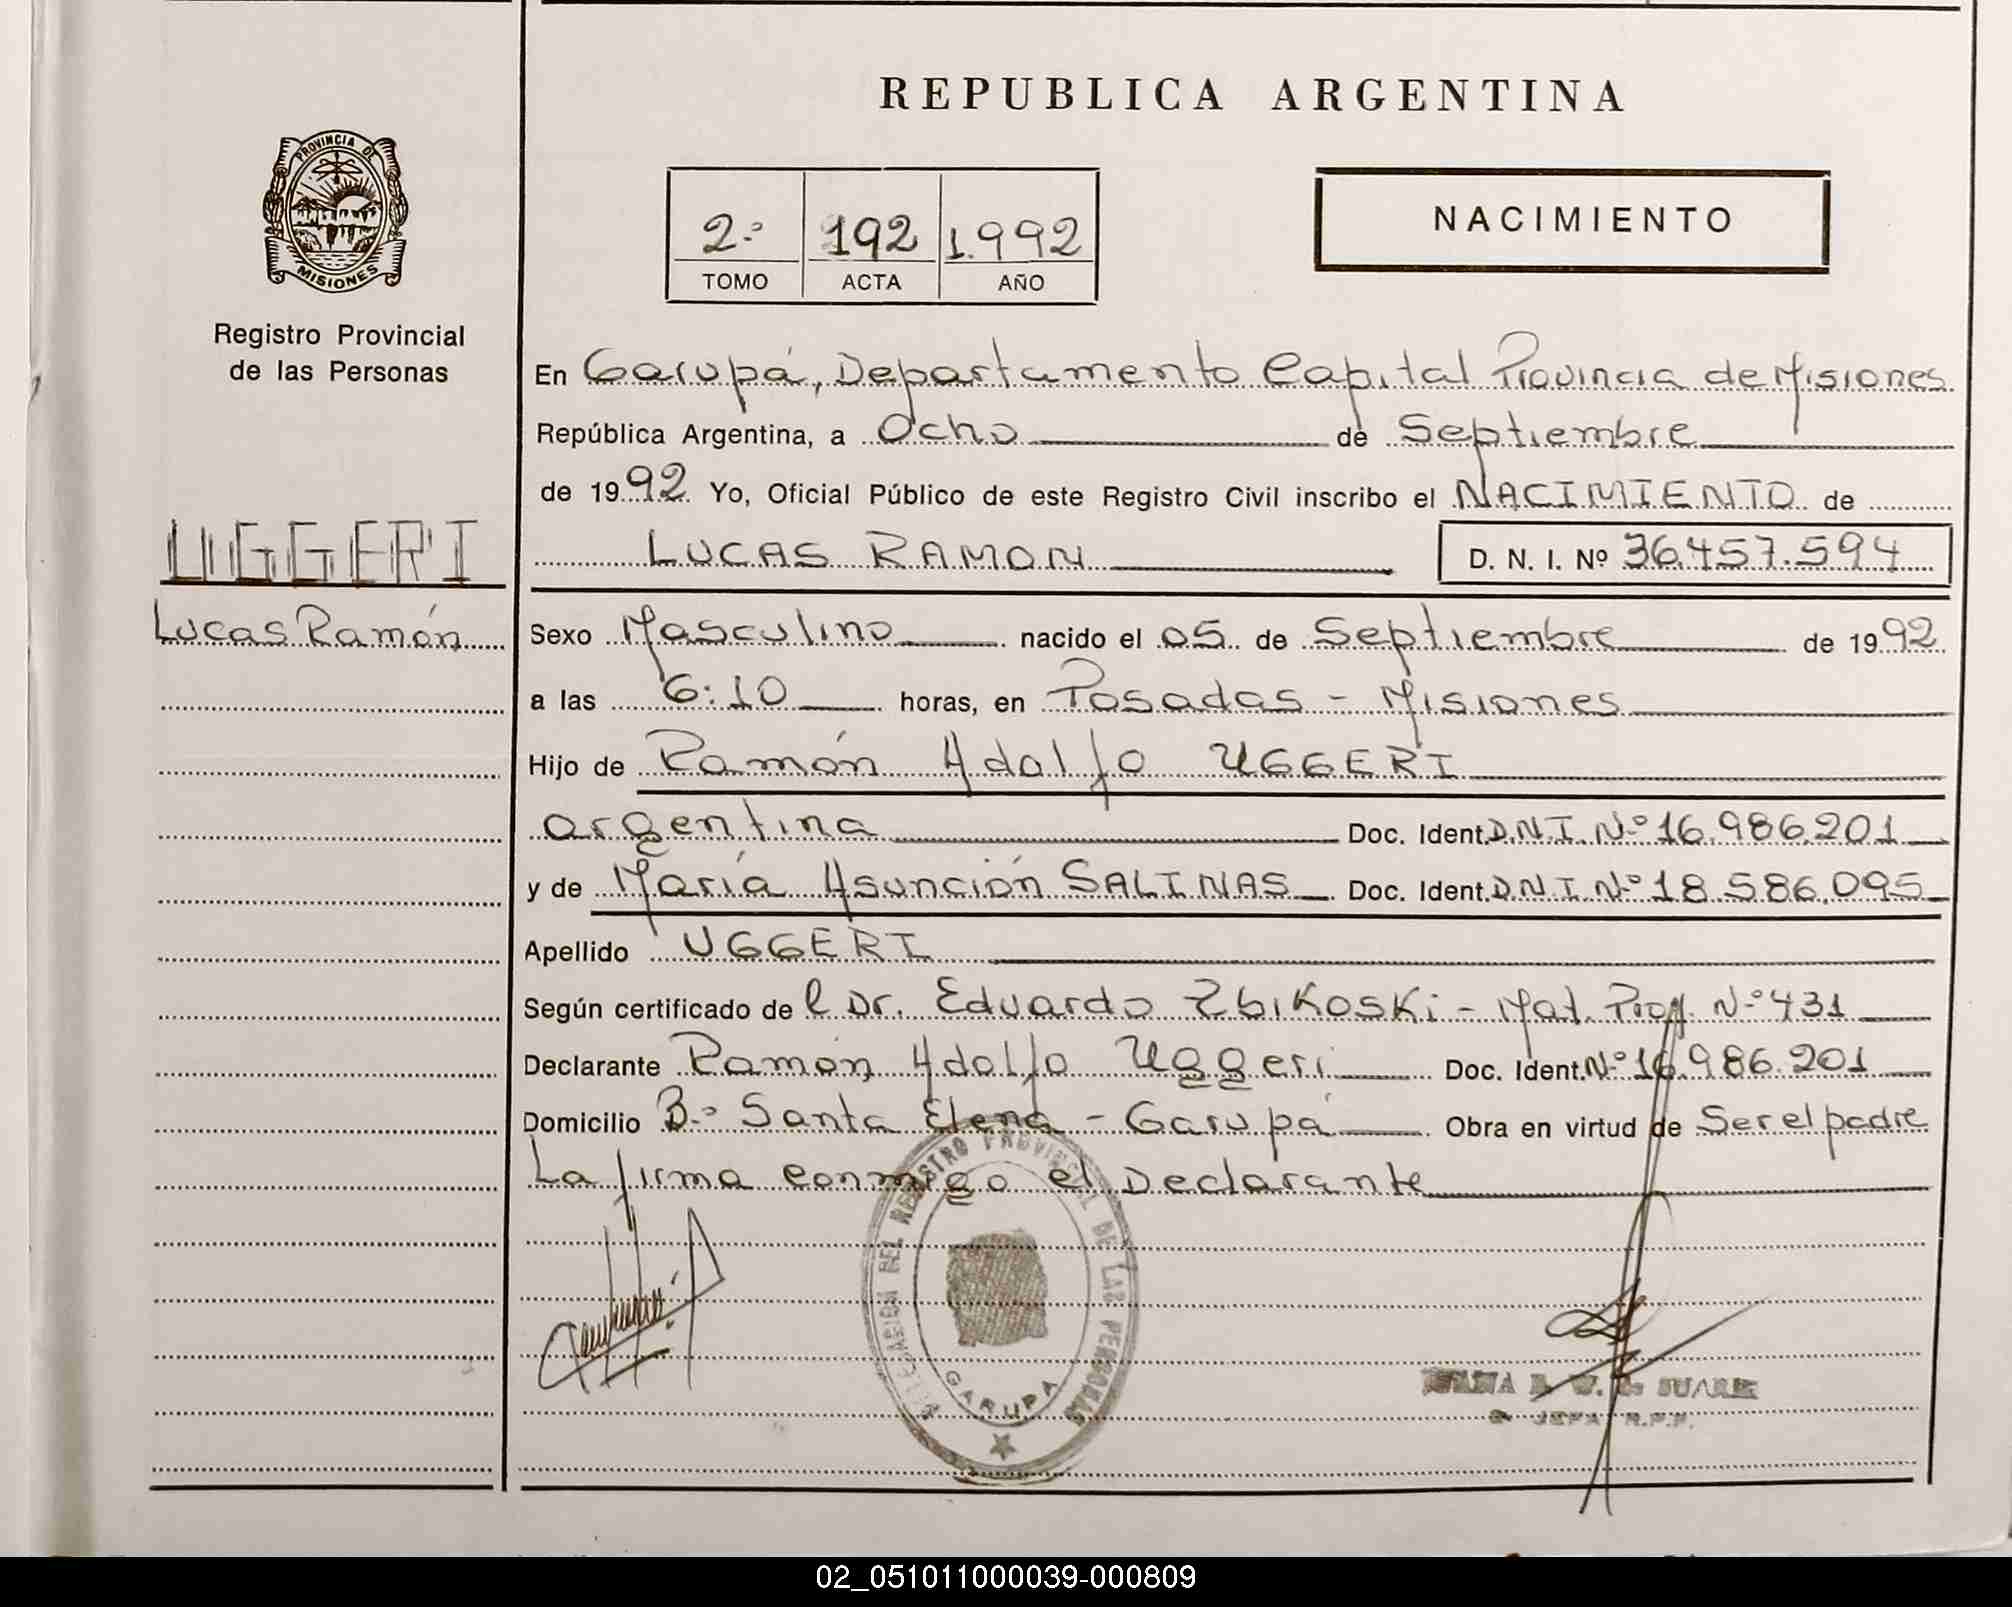 REPUBLICA ARGENTINA
PROVINCIA DE
MISIONES
Registro Provincial
de las Personas
2º 192 1.992
TOMO ACTA AÑO
NACIMIENTO
En Garupá, Departamento Capital Provincia de Misiones
República Argentina, a Ocho de Septiembre
de 1992 Yo, Oficial Público de este Registro Civil inscribo el NACIMIENTO de
LUCAS RAMON D. N. I. Nº 36.457.594
UGGERI
Lucas Ramón
Sexo Masculino nacido el 05 de Septiembre de 1992
a las 6:10 horas, en Posadas - Misiones
Hijo de Ramón Adolfo UGGERI
argentina Doc. Ident. D.N.I. Nº 16.986.201
y de María Asunción SALINAS Doc. Ident. D.N.I. Nº 18.586.095
Apellido UGGERI
Según certificado de l Dr. Eduardo Zbikoski - Mat. Prof. Nº 431
Declarante Ramón Adolfo Uggeri Doc. Ident. Nº 16.986.201
Domicilio Bº Santa Elena - Garupá Obra en virtud de Ser el padre
La firma conmigo el Declarante
DEL REGISTRO PROVINCIAL DE LAS PERSONAS
GARUPA
SUAREZ
JEFA R.P.P.
02_051011000039-000809